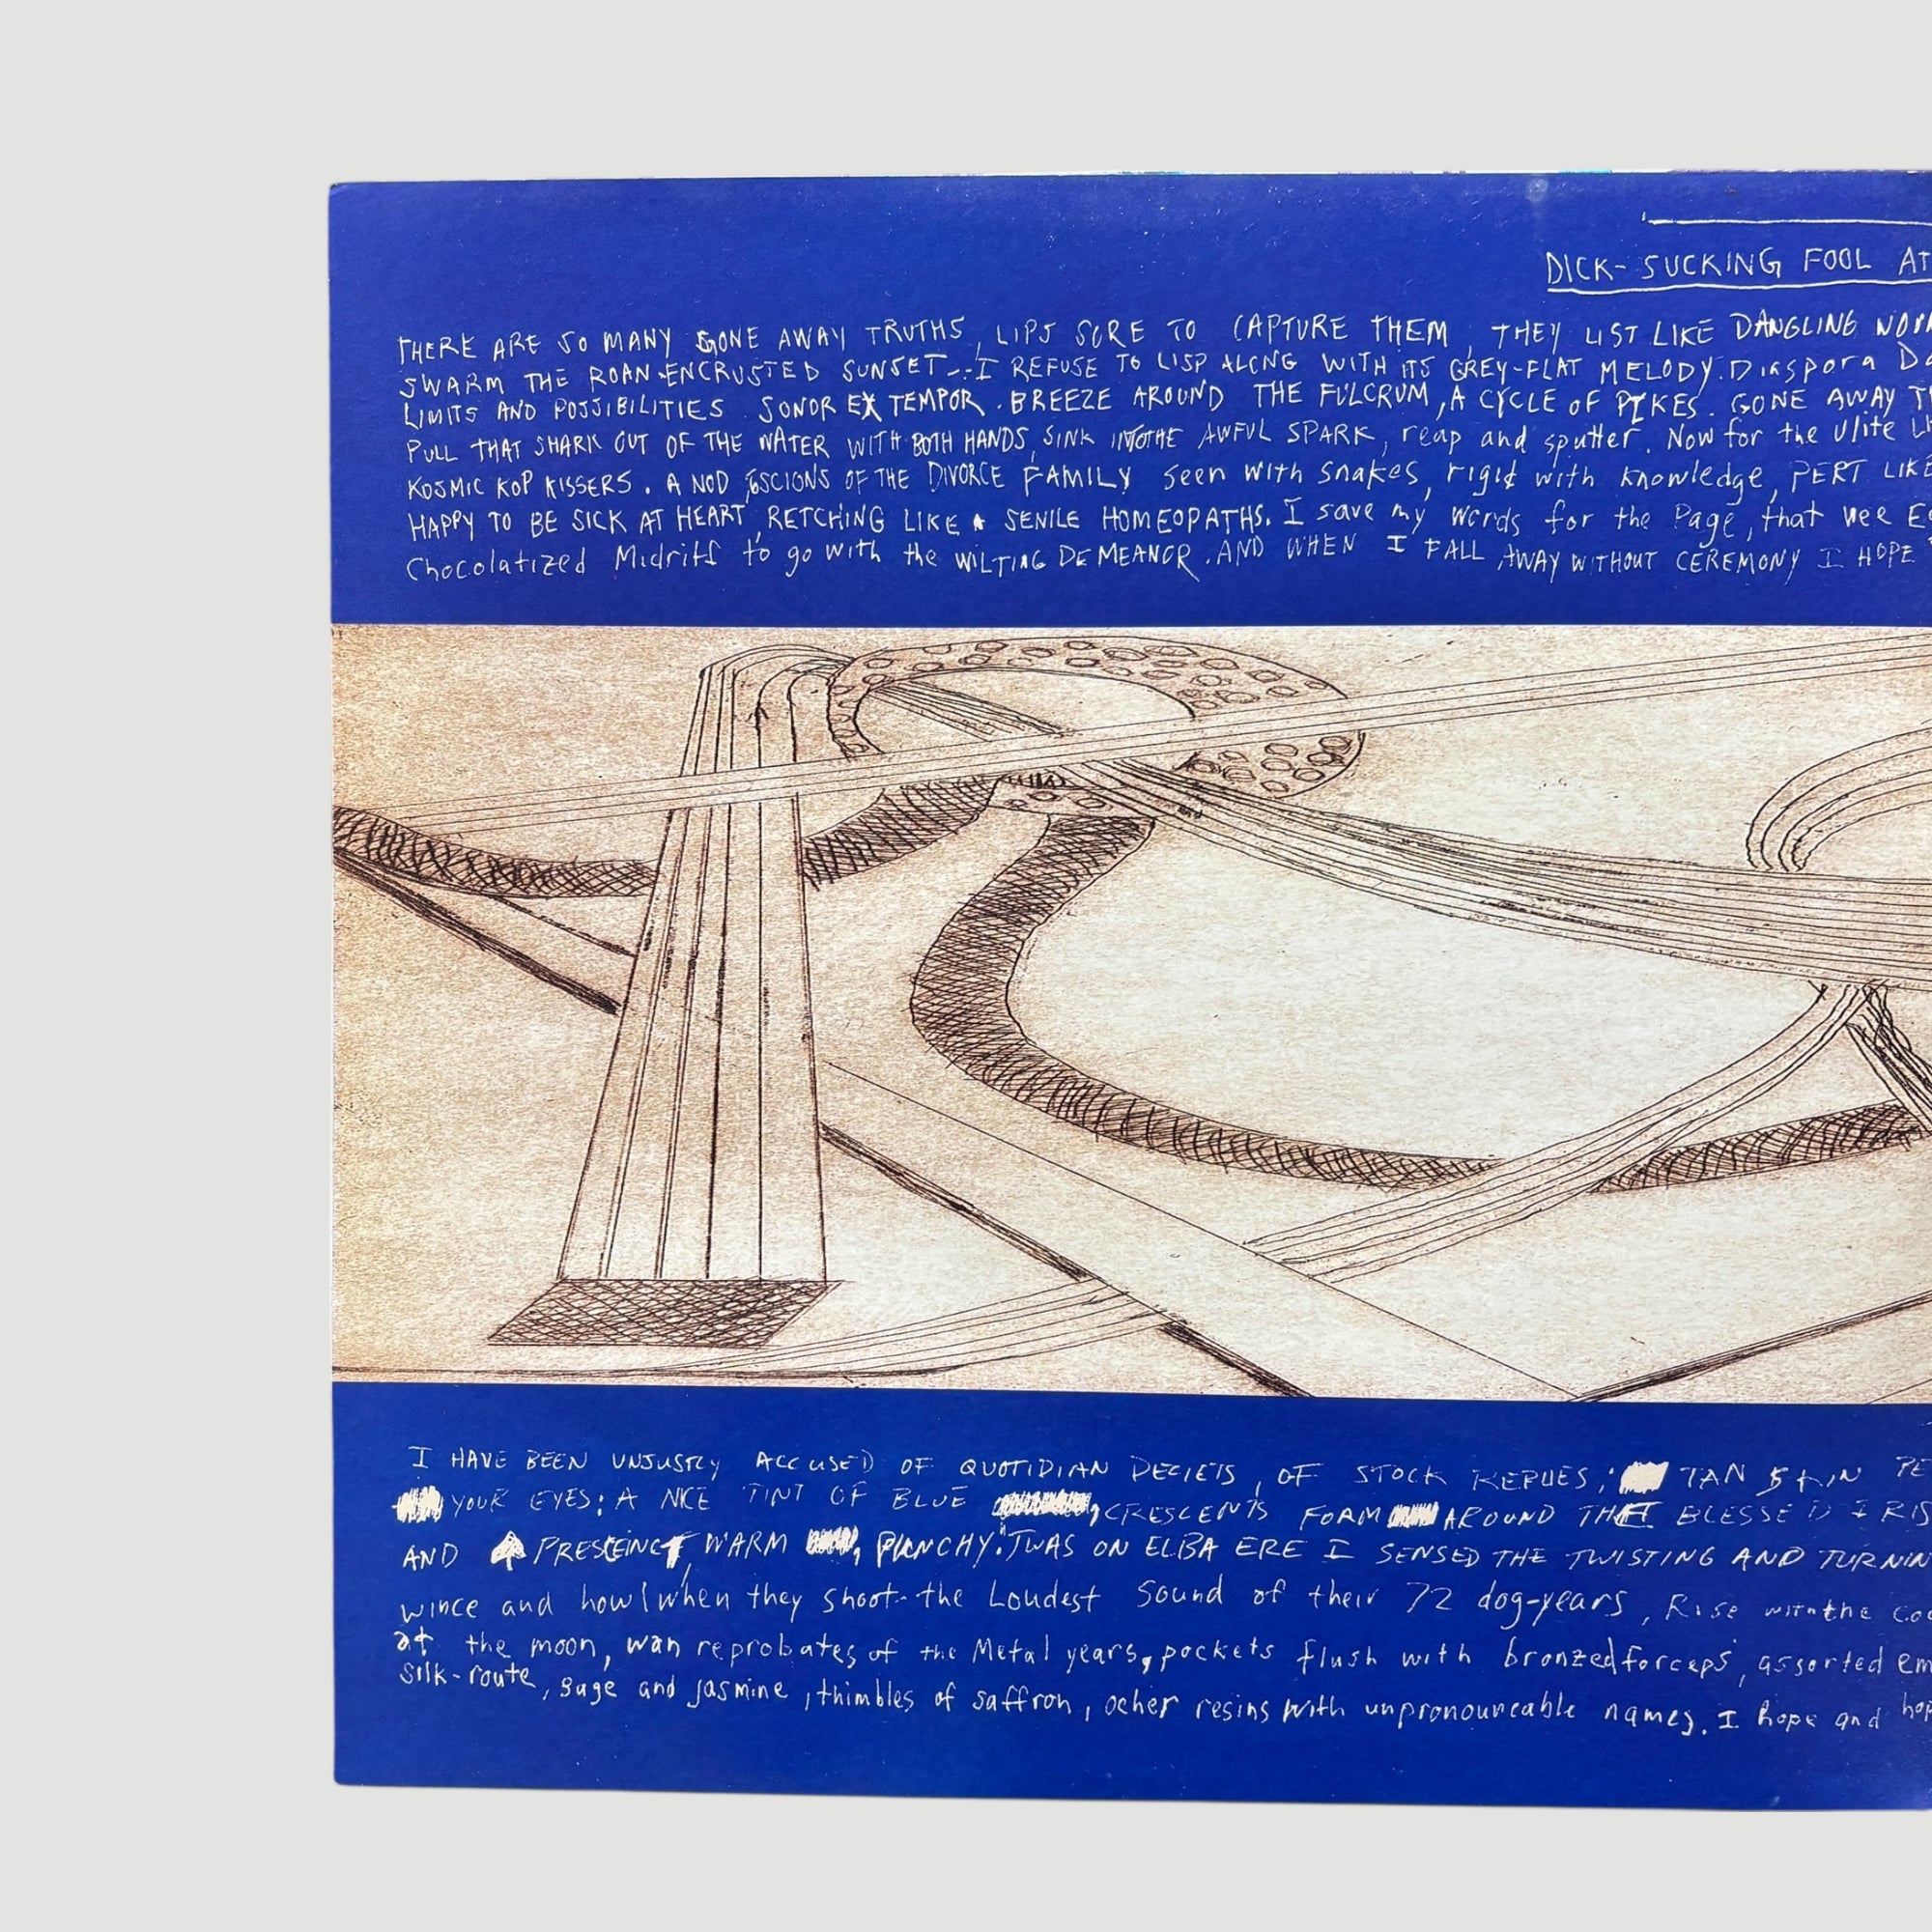 DICK-SUCKING FOOL AT
THERE ARE SO MANY GONE AWAY TRUTHS, LIPS SURE TO CAPTURE THEM, THEY LIST LIKE DANGLING
SWARM THE ROAN-ENCRUSTED SUNSET--I REFUSE TO LISP ALONG WITH ITS GREY-FLAT MELODY. Diaspora
LIMITS AND POSSIBILITIES. SONOR EX TEMPOR. BREEZE AROUND THE FULCRUM, A CYCLE OF PYKES. GONE AWAY
PULL THAT SHARK OUT OF THE WATER WITH BOTH HANDS, SINK INTO THE AWFUL SPARK, reap and sputter. Now for the Ulite
KOSMIC KOP KISSERS. A NOD SCIONS OF THE DIVORCE FAMILY seen with snakes, rigid with knowledge, PERT LIKE
HAPPY TO BE SICK AT HEART, RETCHING LIKE A SENILE HOMEOPATHS. I save my words for the Page, that vee
Chocolatized Midriff to go with the WILTING DEMEANOR. AND WHEN I FALL AWAY WITHOUT CEREMONY I HOPE
I HAVE BEEN UNJUSTLY ACCUSED OF QUOTIDIAN DECIETS, OF STOCK REPLIES; TAN SKIN
YOUR EYES: A NICE TINT OF BLUE, CRESCENTS FOAM AROUND THE BLESSED IRIS
AND PRESCEINCT, WARM, PUNCHY. 'TWAS ON ELBA ERE I SENSED THE TWISTING AND TURNIN
wince and howl when they shoot-the Loudest Sound of their 72 dog-years, Rise with the
at the moon, wan reprobates of the Metal years, pockets flush with bronzed forceps, assorted
silk-route, sage and jasmine, thimbles of saffron, ocher resins with unpronounceable names. I hope and